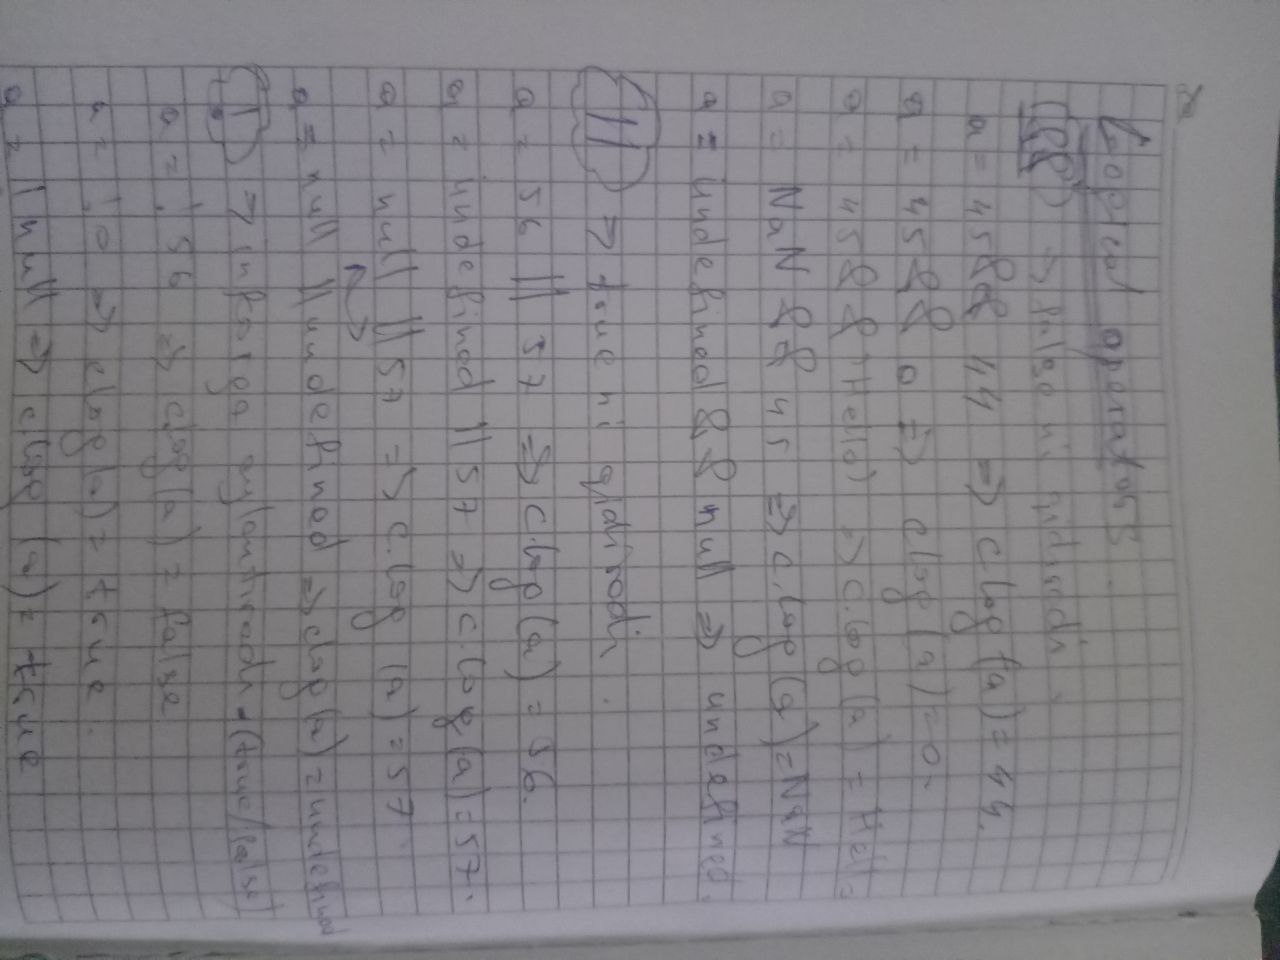 Logical operators
(&&) => false ni qidiradi
a = 45 && 44 => c.log(a) = 44.
a = 45 && 0 => c.log(a) = 0.
a = 45 && 'Hello' => c.log(a) = Hello
a = NaN && 45 => c.log(a) = NaN
a = undefined && null => undefined.
|| => true ni qidiradi.
a = 56 || 57 => c.log(a) = 56.
a = undefined || 57 => c.log(a) = 57.
a = null || 57 => c.log(a) = 57
a = null || undefined => c.log(a) = undefined
! => inkorga aylantiradi. (true/false)
a = !56 => c.log(a) = false
a = !0 => c.log(a) = true.
a = !null => c.log(a) = true